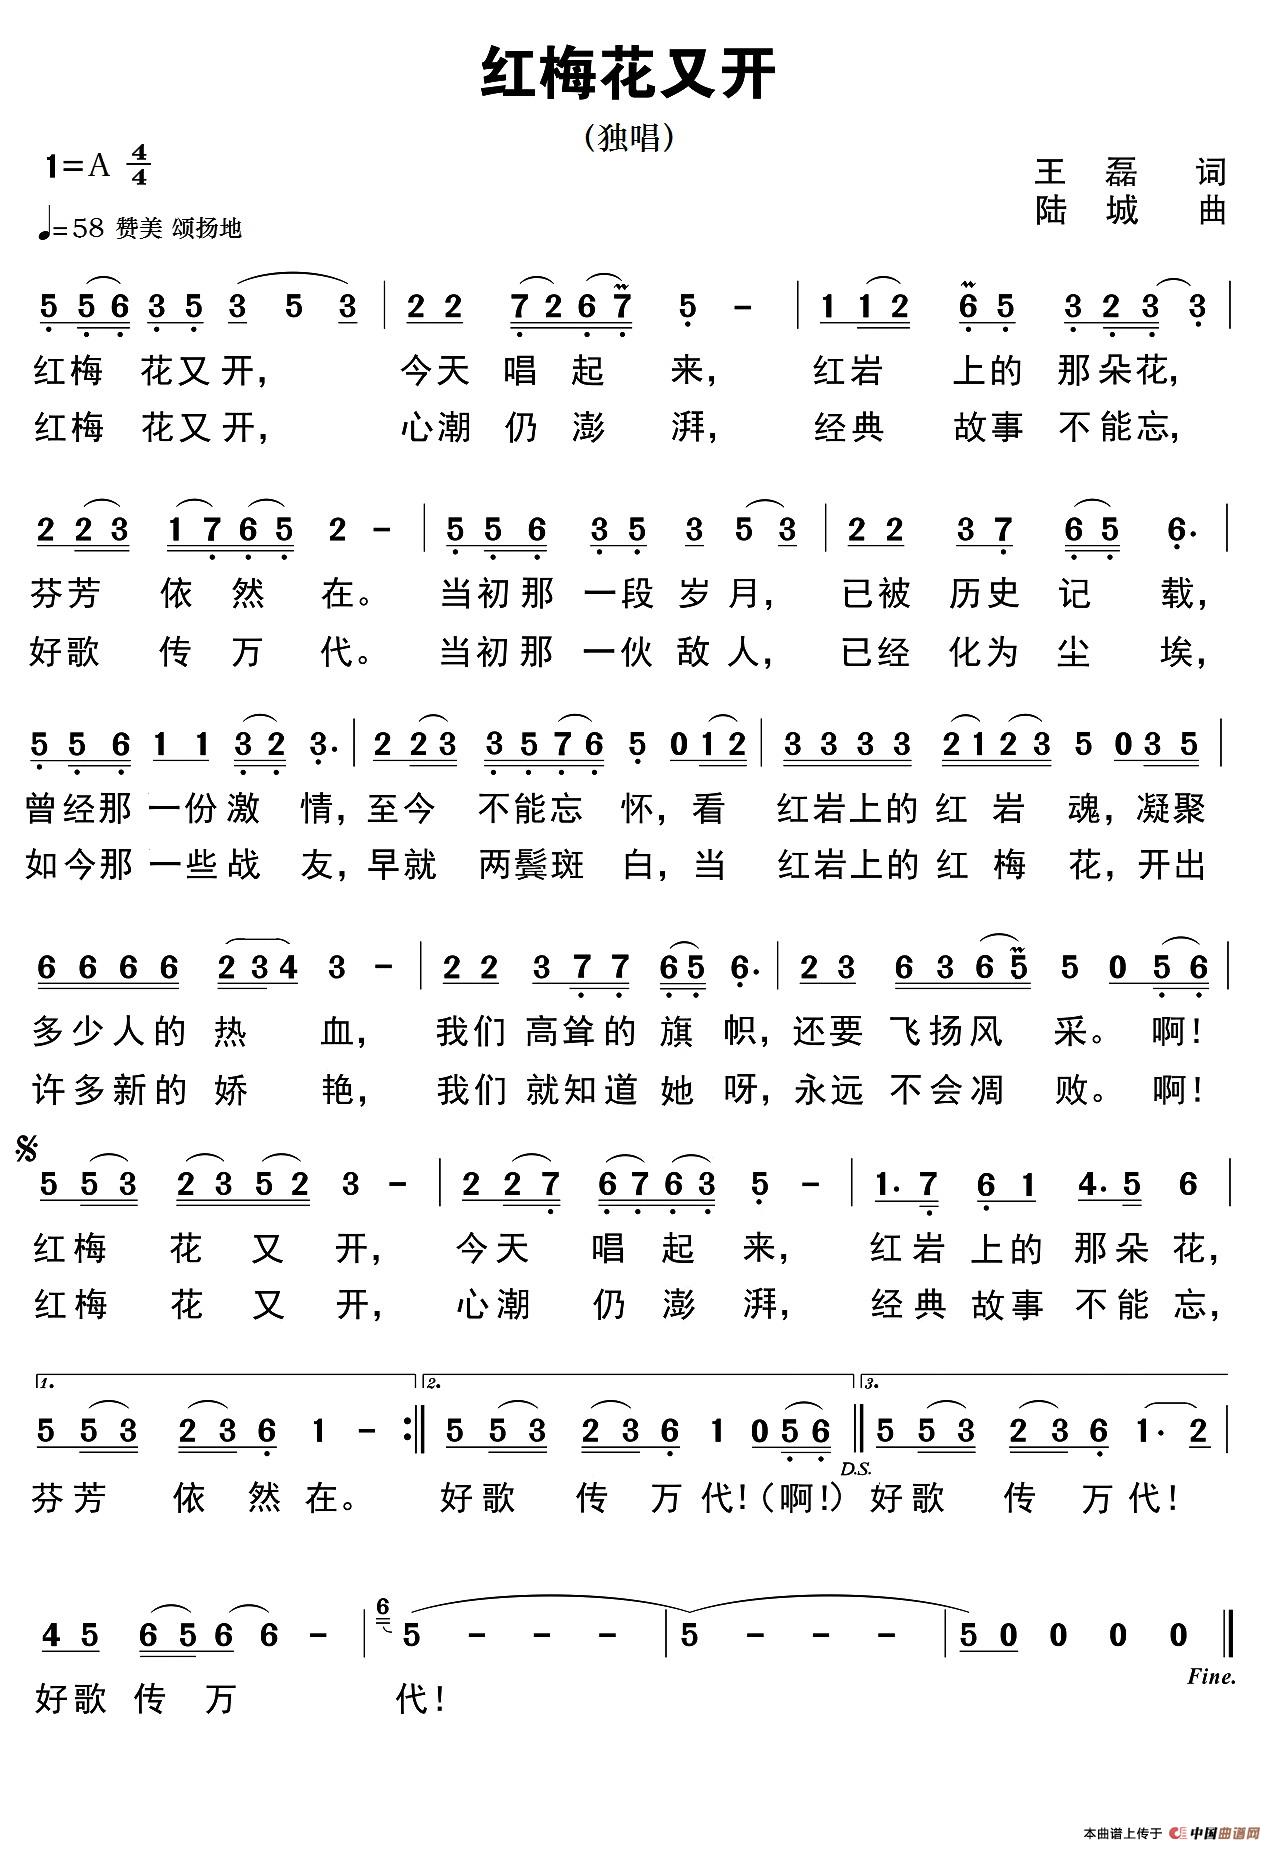 红梅花又开
(独唱)
1=A 4/4
王 磊 词
♩=58 赞美 颂扬地
陆 城 曲
5 5 6 3 5 3 5 3 | 2 2 7 2 6 7 5 - | 1 1 2 6 5 3 2 3 3 |
红梅 花又开, 今天 唱 起 来, 红岩 上的 那朵花,
红梅 花又开, 心潮 仍 澎 湃, 经典 故事 不能忘,
2 2 3 1 7 6 5 2 - | 5 5 6 3 5 3 5 3 | 2 2 3 7 6 5 6. |
芬芳 依 然 在。 当初那 一段 岁 月, 已被 历史 记 载,
好歌 传 万 代。 当初那 一伙 敌 人, 已经 化为 尘 埃,
5 5 6 1 1 3 2 3. | 2 2 3 3 5 7 6 5 0 1 2 | 3 3 3 3 2 1 2 3 5 0 3 5 |
曾经那 一份 激 情, 至今 不能忘 怀, 看 红岩上的 红 岩 魂, 凝聚
如今那 一些 战 友, 早就 两鬓斑 白, 当 红岩上的 红 梅 花, 开出
6 6 6 6 2 3 4 3 - | 2 2 3 7 7 6 5 6. | 2 3 6 3 6 5 5 0 5 6 |
多少人的 热 血, 我们 高耸的 旗 帜, 还要 飞扬风 采。 啊!
许多新的 娇 艳, 我们 就知道 她 呀, 永远 不会凋 败。 啊!
5 5 3 2 3 5 2 3 - | 2 2 7 6 7 6 3 5 - | 1. 7 6 1 4. 5 6 |
红梅 花 又 开, 今天 唱 起 来, 红岩 上的 那朵 花,
红梅 花 又 开, 心潮 仍 澎 湃, 经典 故事 不能 忘,
1. 2. 3.
5 5 3 2 3 6 1 - :|| 5 5 3 2 3 6 1 0 5 6 || 5 5 3 2 3 6 1. 2 |
D.S.
芬芳 依 然 在。 好歌 传 万 代!(啊!) 好歌 传 万 代!
4 5 6 5 6 6 - | 6 5 - - - | 5 - - - | 5 0 0 0 0 ||
Fine.
好歌 传 万 代!
本曲谱上传于 中国曲谱网